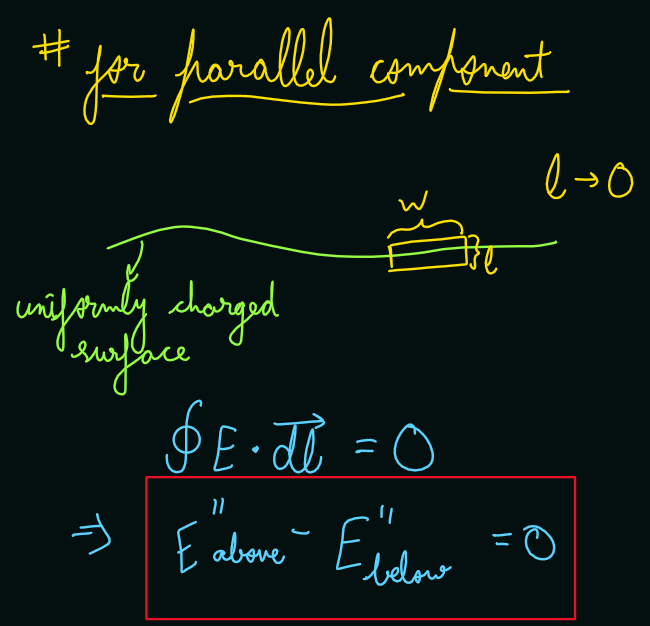 # for parallel component
l → 0
w
l
uniformly charged
surface
∮ E · dl⃗ = 0
⇒ E" above - E" below = 0